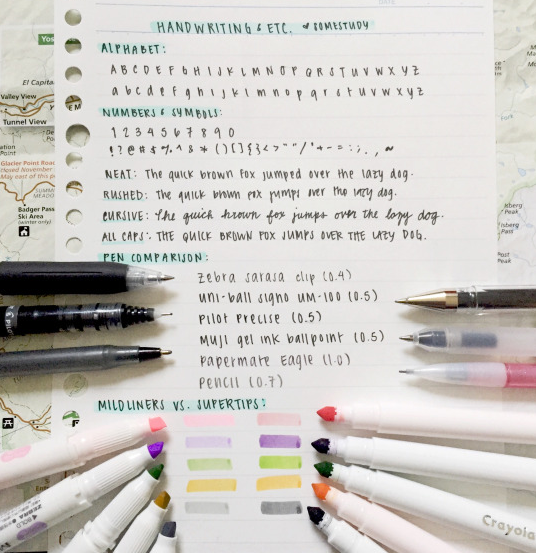 HANDWRITING & ETC. ♥ SOMESTUDY
ALPHABET:
A B C D E F G H I J K L M N O P Q R S T U V W X Y Z
a b c d e f g h i j k l m n o p q r s t u v w x y z
NUMBERS & SYMBOLS:
1 2 3 4 5 6 7 8 9 0
! ? @ # $ % ^ & * ( ) [ ] { } < > " " / ' + - = : ; . , ~
NEAT: The quick brown fox jumped over the lazy dog.
RUSHED: The quick brown fox jumps over the lazy dog.
CURSIVE: The quick brown fox jumps over the lazy dog.
ALL CAPS: THE QUICK BROWN FOX JUMPS OVER THE LAZY DOG.
PEN COMPARISON:
zebra sarasa clip (0.4)
uni-ball signo um-100 (0.5)
pilot precise (0.5)
muji gel ink ballpoint (0.5)
papermate eagle (1.0)
pencil (0.7)
MILDLINERS VS. SUPERTIPS:
Yos
El Capita
Valley View
Tunnel View
Glacier Point Road
Badger Pass
Ski Area
(winter only)
Isberg
Peak
Post
Peak
PILOT
BOLD
Crayola